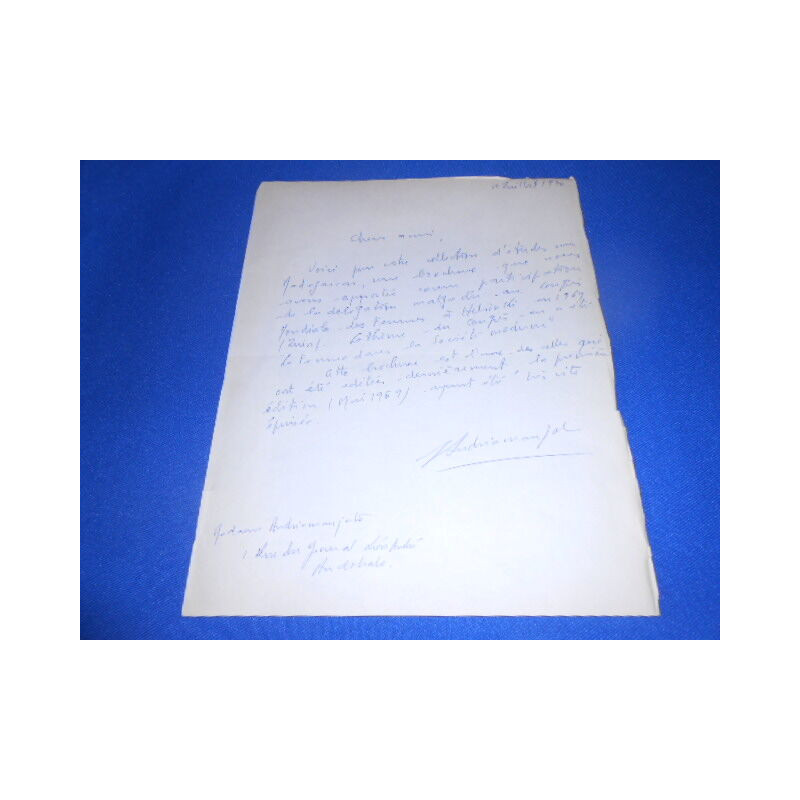 Juillet 1970
Cher ami,
Voici pour votre sélection d'études sur
Madagascar, une brochure que nous
avons apportée avec participation
de la délégation malgache au congrès
Mondiale des Femmes à Helsinki en 1969
(Juin). Le thème du congrès en a été
La Femme dans la Société moderne"
Cette brochure est l'une des celles qui
ont été éditées dernièrement la première
édition (Mai 1969) ayant été très vite
épuisée.
Andriamanjato
Madame Andriamanjato
1 Rue du Général
Andohalo.